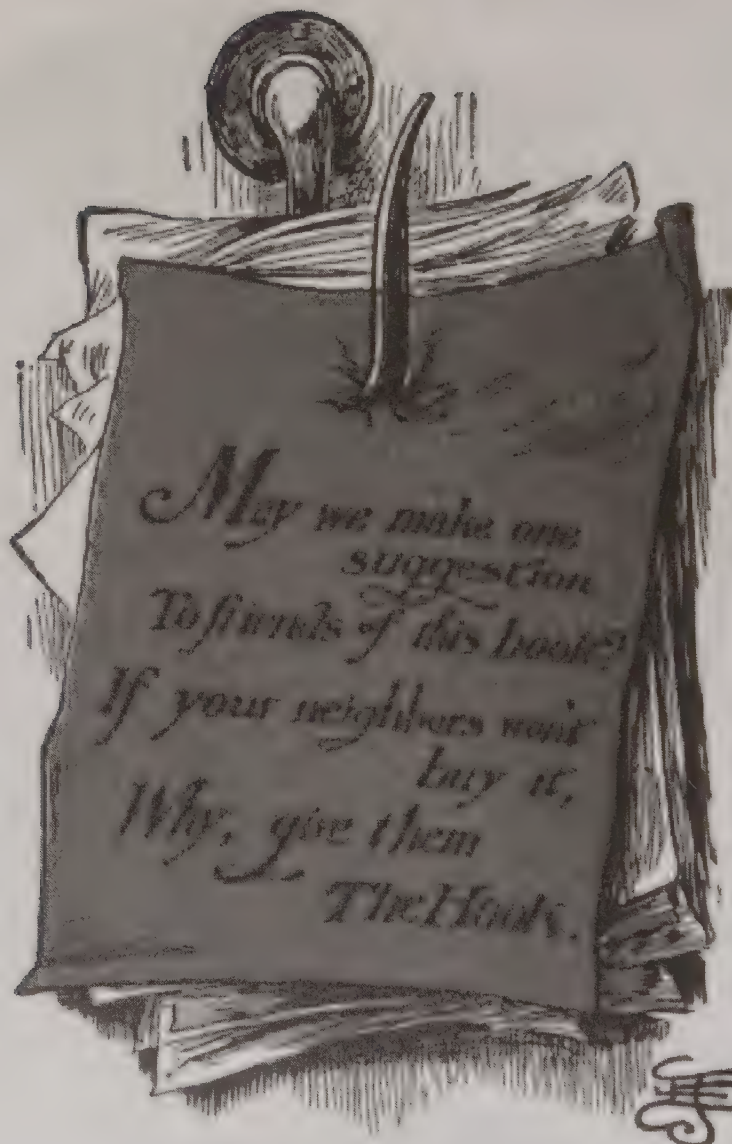 May we make one
suggestion
To friends of this book?
If your neighbors won't
buy it,
Why, give them
The Hook.